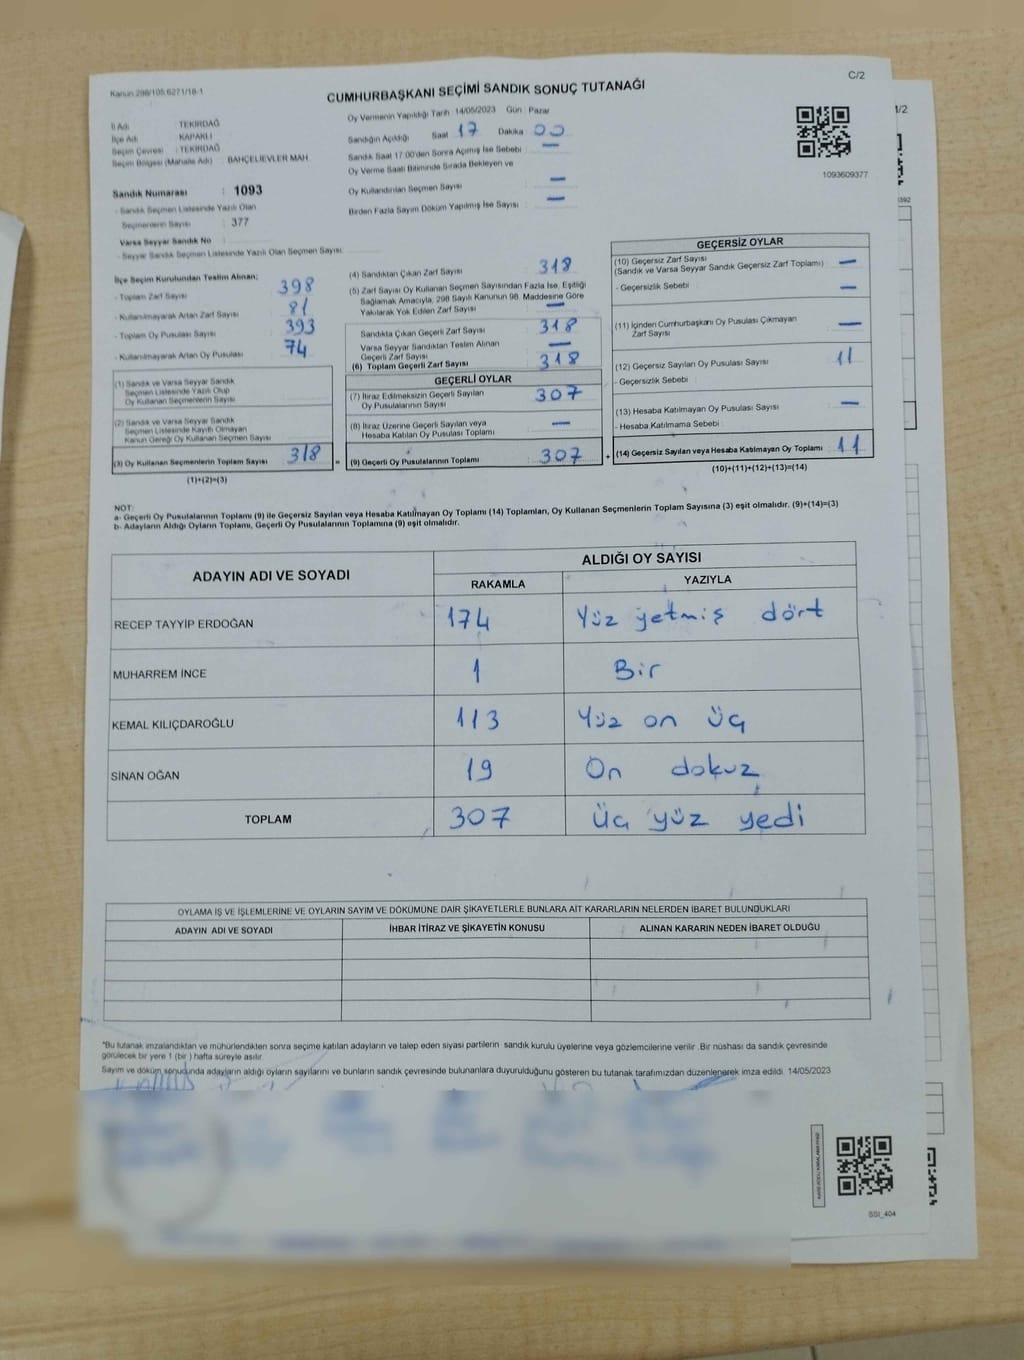 C/2
Kanun 298/105.6271/18-1
CUMHURBAŞKANI SEÇİMİ SANDIK SONUÇ TUTANAĞI
Oy Vermenin Yapıldığı Tarih 14/05/2023 Gün : Pazar
İl Adı : TEKİRDAĞ
İlçe Adı : KAPAKLI
Seçim Çevresi : TEKİRDAĞ
Seçim Bölgesi (Mahalle Adı) : BAHÇELİEVLER MAH
Sandığın Açıldığı Saat 17 Dakika 00
Sandık Saat 17.00'den Sonra Açılmış İse Sebebi : —
Oy Verme Saati Bitiminde Sırada Bekleyen ve
Oy Kullandırılan Seçmen Sayısı —
Birden Fazla Sayım Döküm Yapılmış İse Sayısı : —
1093609377
Sandık Numarası : 1093
- Sandık Seçmen Listesinde Yazılı Olan
Seçmenlerin Sayısı : 377
Varsa Seyyar Sandık No :
- Seyyar Sandık Seçmen Listesinde Yazılı Olan Seçmen Sayısı:
İlçe Seçim Kurulundan Teslim Alınan;
- Toplam Zarf Sayısı : 398
- Kullanılmayarak Artan Zarf Sayısı : 81
- Toplam Oy Pusulası Sayısı : 393
- Kullanılmayarak Artan Oy Pusulası : 74
(1) Sandık ve Varsa Seyyar Sandık
Seçmen Listesinde Yazılı Olup
Oy Kullanan Seçmenlerin Sayısı :
(2) Sandık ve Varsa Seyyar Sandık
Seçmen Listesinde Kayıtlı Olmayan
Kanun Gereği Oy Kullanan Seçmen Sayısı :
(3) Oy Kullanan Seçmenlerin Toplam Sayısı : 318
(1)+(2)=(3)
(4) Sandıktan Çıkan Zarf Sayısı : 318
(5) Zarf Sayısı Oy Kullanan Seçmen Sayısından Fazla İse, Eşitliği
Sağlamak Amacıyla, 298 Sayılı Kanunun 98. Maddesine Göre
Yakılarak Yok Edilen Zarf Sayısı : —
Sandıkta Çıkan Geçerli Zarf Sayısı : 318
Varsa Seyyar Sandıktan Teslim Alınan
Geçerli Zarf Sayısı : —
(6) Toplam Geçerli Zarf Sayısı : 318
GEÇERLİ OYLAR
(7) İtiraz Edilmeksizin Geçerli Sayılan
Oy Pusulalarının Sayısı : 307
(8) İtiraz Üzerine Geçerli Sayılan veya
Hesaba Katılan Oy Pusulası Toplamı : —
(9) Geçerli Oy Pusulalarının Toplamı : 307
GEÇERSİZ OYLAR
(10) Geçersiz Zarf Sayısı
(Sandık ve Varsa Seyyar Sandık Geçersiz Zarf Toplamı) : —
- Geçersizlik Sebebi : —
(11) İçinden Cumhurbaşkanı Oy Pusulası Çıkmayan
Zarf Sayısı : —
(12) Geçersiz Sayılan Oy Pusulası Sayısı : 11
- Geçersizlik Sebebi :
(13) Hesaba Katılmayan Oy Pusulası Sayısı : —
- Hesaba Katılmama Sebebi :
(14) Geçersiz Sayılan veya Hesaba Katılmayan Oy Toplamı : 11
(10)+(11)+(12)+(13)=(14)
NOT:
a- Geçerli Oy Pusulalarının Toplamı (9) ile Geçersiz Sayılan veya Hesaba Katılmayan Oy Toplamı (14) Toplamları, Oy Kullanan Seçmenlerin Toplam Sayısına (3) eşit olmalıdır. (9)+(14)=(3)
b- Adayların Aldığı Oyların Toplamı, Geçerli Oy Pusulalarının Toplamına (9) eşit olmalıdır.
ADAYIN ADI VE SOYADI
ALDIĞI OY SAYISI
RAKAMLA YAZIYLA
RECEP TAYYİP ERDOĞAN 174 Yüz yetmiş dört
MUHARREM İNCE 1 Bir
KEMAL KILIÇDAROĞLU 113 Yüz on üç
SİNAN OĞAN 19 On dokuz
TOPLAM 307 Üç yüz yedi
OYLAMA İŞ VE İŞLEMLERİNE VE OYLARIN SAYIM VE DÖKÜMÜNE DAİR ŞİKAYETLERLE BUNLARA AİT KARARLARIN NELERDEN İBARET BULUNDUKLARI
ADAYIN ADI VE SOYADI İHBAR İTİRAZ VE ŞİKAYETİN KONUSU ALINAN KARARIN NEDEN İBARET OLDUĞU
*Bu tutanak imzalandıktan ve mühürlendikten sonra seçime katılan adayların ve talep eden siyasi partilerin sandık kurulu üyelerine veya gözlemcilerine verilir. Bir nüshası da sandık çevresinde
görülecek bir yere 1 (bir) hafta süreyle asılır.
Sayım ve döküm sonucunda adayların aldığı oyların sayılarını ve bunların sandık çevresinde bulunanlara duyurulduğunu gösteren bu tutanak tarafımızdan düzenlenerek imza edildi. 14/05/2023
SSI_404